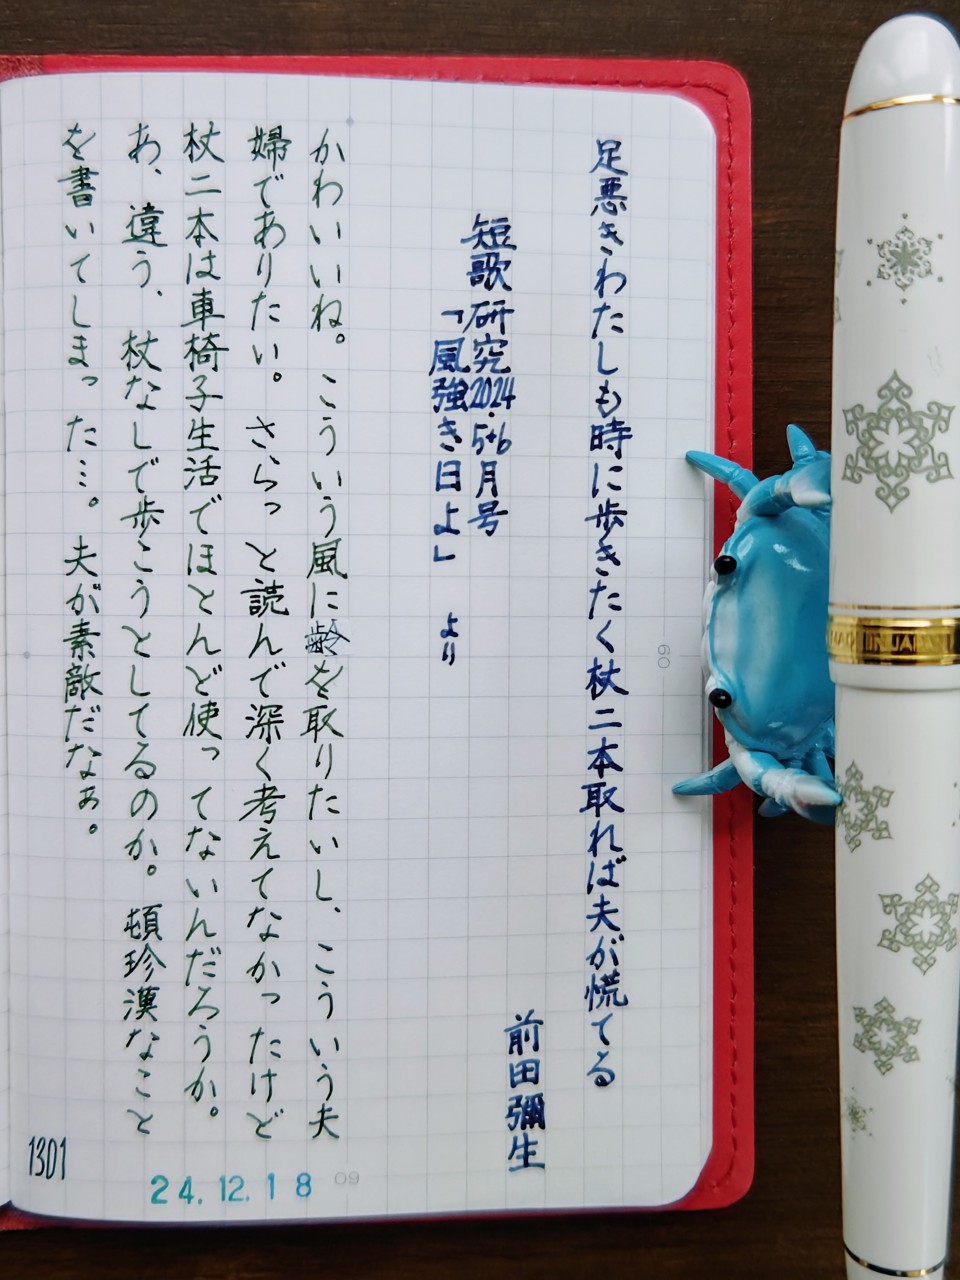 足悪きわたしも時に歩きたく杖二本取れば夫が慌てる
前田彌生
短歌研究2024.5+6月号
「風強き日よ」 より
かわいいね。こういう風に齢を取りたいし、こういう夫
婦でありたい。さらっと読んで深く考えてなかったけど
杖二本は車椅子生活でほとんど使ってないんだろうか。
あ、違う、杖なしで歩こうとしてるのか。頓珍漢なこと
を書いてしまった…。夫が素敵だなぁ。
1301
24.12.18
09
60
MADE IN JAPAN